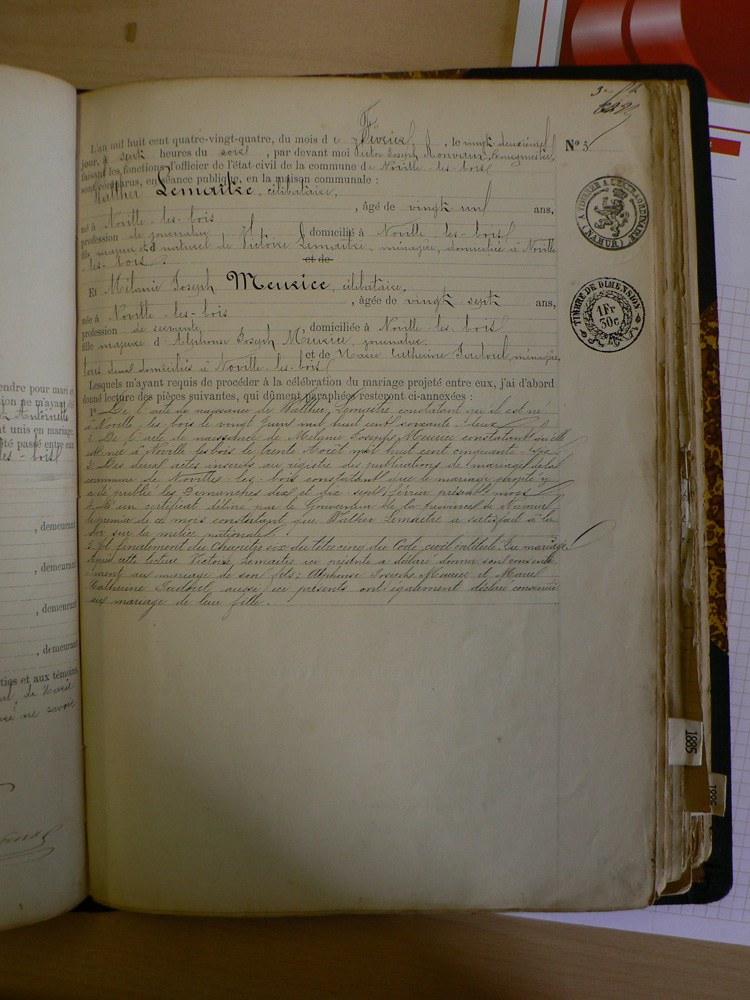 L'an mil huit cent quatre-vingt-quatre, du mois de Février, le vingt deuxième
jour, à sept heures du soir, par devant moi Victor Joseph Bourgmestre,
faisant les fonctions d'officier de l'état-civil de la commune de Noville-les-bois
sont comparus, en séance publique, en la maison communale :
Walther Lemaître, célibataire,
, âgé de vingt un ans,
né à Noville-les-bois
profession de journalier, domicilié à Noville-les-bois
fils majeur et naturel de Victoire Lemaître, ménagère, domiciliée à Noville
-les-bois.
et de
Et Mélanie Joseph Meurice, célibataire,
, âgée de vingt sept ans,
née à Noville-les-bois
profession de servante, domiciliée à Noville-les-bois
fille majeure d'Alphonse Joseph Meurice, journalier,
et de Marie Catherine ménagère,
tous deux domiciliés à Noville-les-bois
Lesquels m'ayant requis de procéder à la célébration du mariage projeté entre eux, j'ai d'abord
donné lecture des pièces suivantes, qui dûment paraphées resteront ci-annexées :
1° De l'acte de naissance de Walther Lemaître constatant qu'il est né
à Noville-les-bois le vingt Juin mil huit cent soixante-deux
2. De l'acte de naissance de Mélanie Joseph Meurice constatant qu'elle
est née à Noville-les-bois le trente Août mil huit cent cinquante-six
3. Des deux actes inscrits au registre des publications de mariage de la
commune de Noville-les-bois constatant que le mariage projeté y
a été publié les Dimanches dix et dix-sept février présent mois
4. D'un certificat délivré par le Gouverneur de la province de Namur
le premier de ce mois constatant que Walther Lemaître a satisfait à la
loi sur la milice nationale.
5. Et finalement du Chapitre six du titre cinq du Code civil intitulé Du mariage
Après cette lecture Victoire Lemaître ici présente a déclaré donner son consente-
ment au mariage de son fils; Alphonse Joseph Meurice et Marie
Catherine aussi ici présents ont également déclaré consentir
au mariage de leur fille.
N° 3
A TIMBRER A L'EXTRAORDINAIRE
(NAMUR)
TIMBRE DE DIMENSION
1Fr
30c
1885
endre pour mari et
Antoinette
t unis en mariage.
été passé entre eux
les-bois
, demeurant
, demeurant
, demeurant
, demeurant
rties et aux témoins,
ne savoir